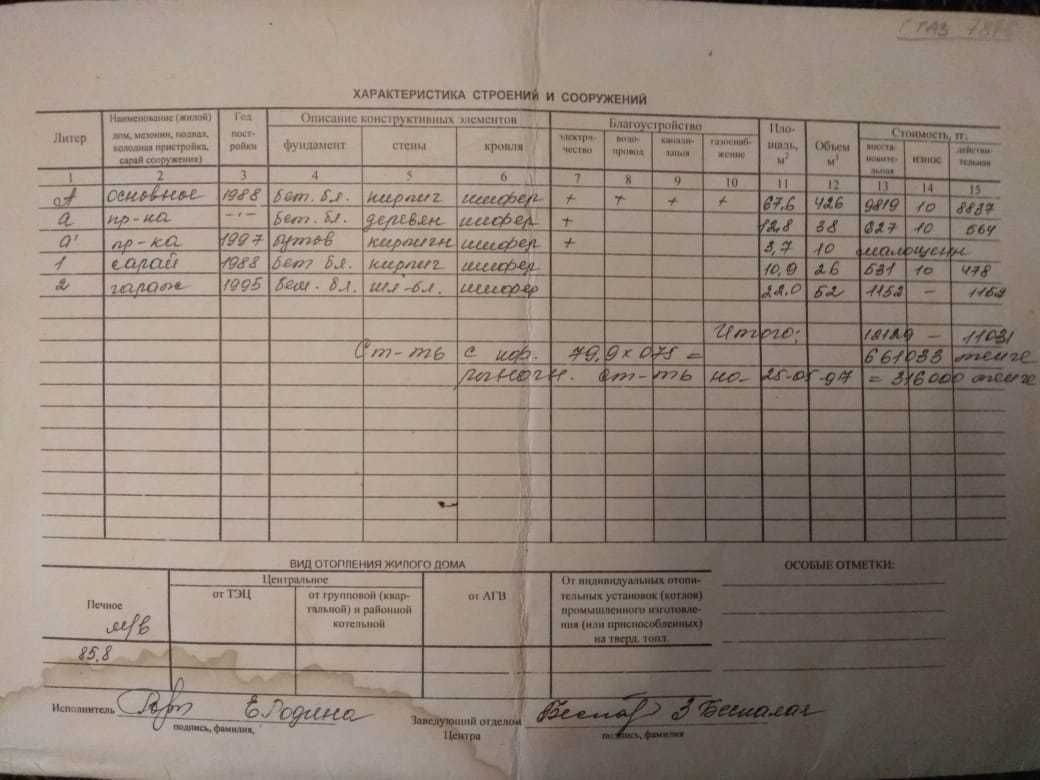 ГАЗ
ХАРАКТЕРИСТИКА СТРОЕНИЙ И СООРУЖЕНИЙ
Литер
Наименование (жилой) дом, мезонин, подвал, холодная пристройка, сарай сооружения)
Год пост-ройки
Описание конструктивных элементов
Благоустройство
Пло-щадь, м²
Объем м³
Стоимость, тг.
фундамент стены кровля электри-чество водо-провод канали-зация газоснаб-жение восста-новите-льная износ действи-тельная
1 2 3 4 5 6 7 8 9 10 11 12 13 14 15
А основное 1988 бет. бл. кирпич шифер + + + + 67,6 426 9819 10 8837
а пр-ка -"- бет. бл. деревян шифер + 12,8 38 627 10 564
а' пр-ка 1997 бутов кирпичн шифер + 3,7 10 малоценн
1 сарай 1988 бет бл. кирпич шифер 10,9 26 531 10 478
2 гараж 1995 бет. бл. шл-бл. шифер 22,0 52 1152 — 1152
Итого: 12129 — 11031
Ст-ть с кор. 79,9 х 075 = 661033 тенге
рыночн. ст-ть на 25-05-97 = 316000 тенге
ВИД ОТОПЛЕНИЯ ЖИЛОГО ДОМА
ОСОБЫЕ ОТМЕТКИ:
Печное
м/в
Центральное
от ТЭЦ
от групповой (квар-тальной) и районной котельной
от АГВ
От индивидуальных отопи-
тельных установок (котлов)
промышленного изготовле-
ния (или приспособленных)
на тверд. топл.
85,8
Исполнитель Е.Родина
подпись, фамилия,
Заведующий отделом Центра З Беспалая
подпись, фамилия